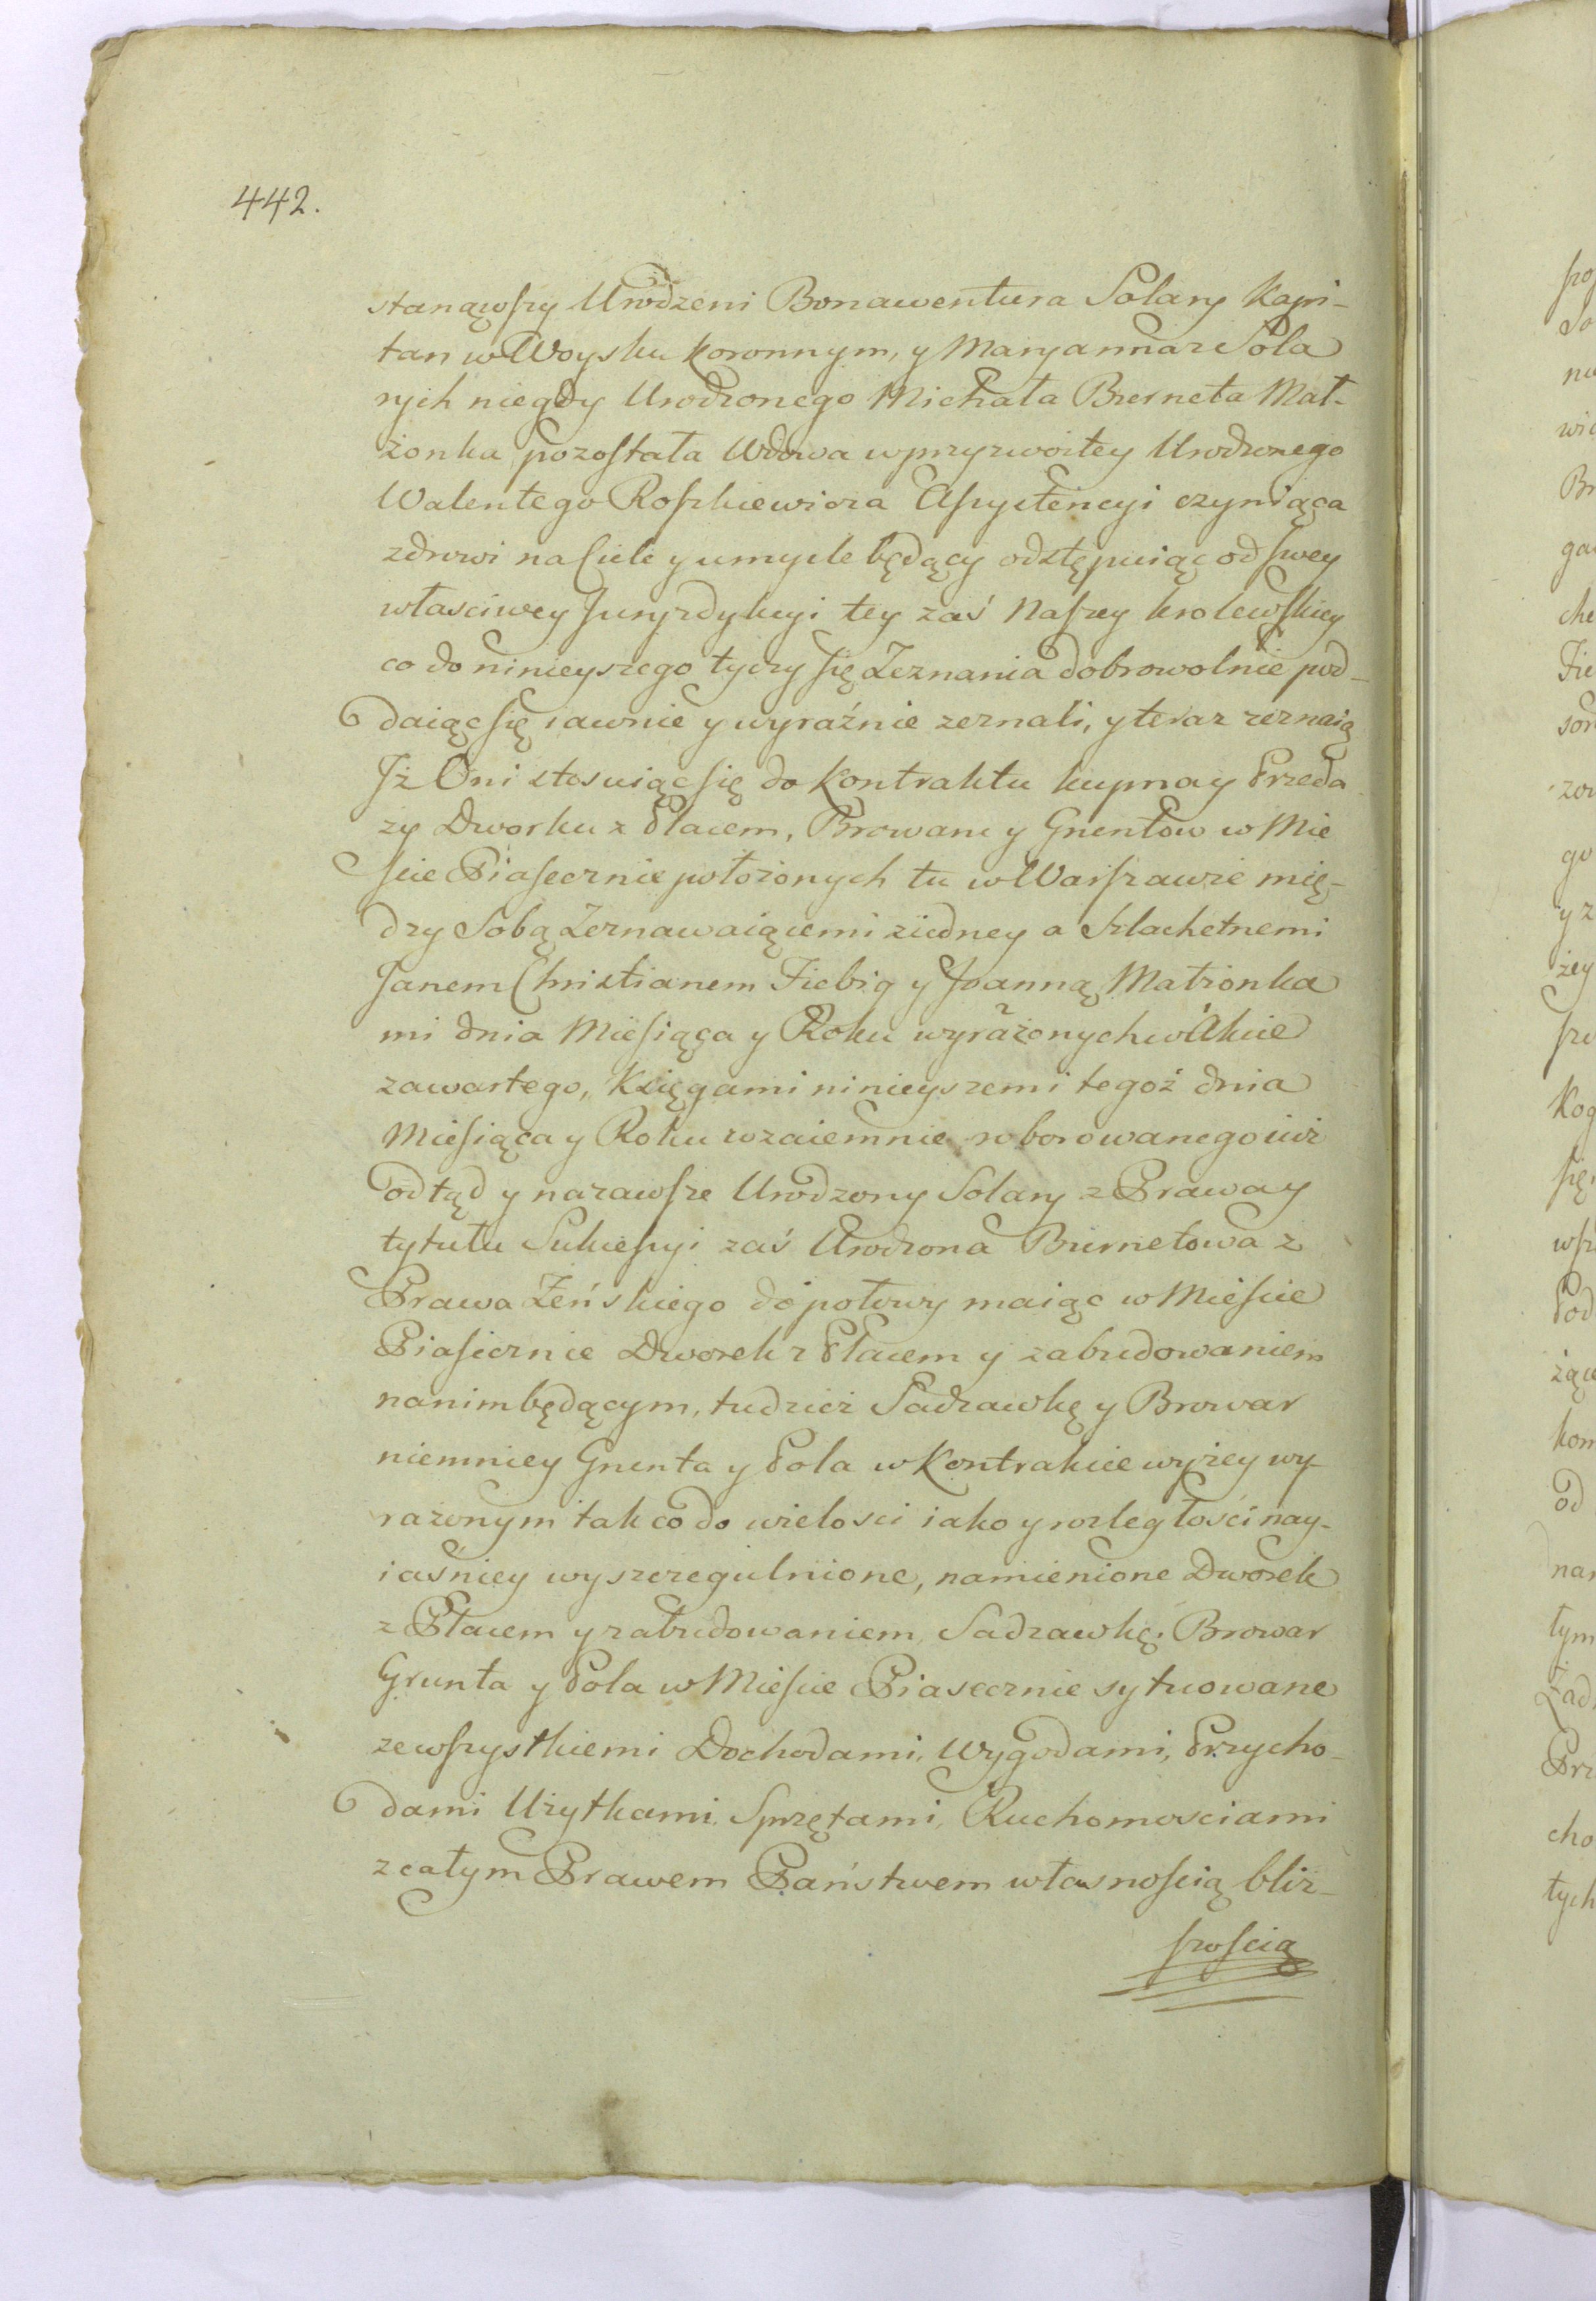 442.
stanąwszy Urodzeni Bonawentura Solary Kapi-
tan w Woysku Koronnym, y Maryanna z Sola
rych niegdy Urodzonego Michała Bierneta Mał-
żonka pozostała Wdowa w przyzwoitey Urodzonego
Walentego Roszkiewicza Assystencyi czyniąca
zdrowi na Ciele y umyśle będący odstępuiąc od swey
własciwey Juryzdykcyi tey zaś Naszey krolewskiey
co do ninieyszego tyczy się Zeznania dobrowolnie pod-
daiąc się iawnie y wyraźnie zeznali, y teraz zeznaią
Jż Oni stosuiąc się do Kontraktu kupna y Przeda
zy Dworku z Placem, Browaru y Gruntow w Mie
scie Piasecznie położonych tu w Warszawie mię-
dzy Sobą Zeznawaiącemi ziedney a Szlachetnemi
Janem Christianem Fiebig y Joanną Małżonka
mi dnia Miesiąca y Roku wyrażonych w Akcie
zawartego, Księgami ninieyszemi tegoż dnia
Miesiąca y Roku wzaiemnie roborowanego iuż
odtąd y nazawsze Urodzony Solary z Prawa y
tytułu Sukcessyi zaś Urodzona Biernetowa z
Prawa Żeńskiego do połowy maiąc w Miescie
Piasecznie Dworek z Placem y zabudowaniem
nanim będącym, tudzież Sadzawkę y Browar
niemniey Grunta y Pola w Kontrakcie wyżey wy-
rażonym tak co do wielosci iako y rozległości nay-
iaśniey wyszczegulnione, namienione Dworek
z Placem y zabudowaniem, Sadzawkę, Browar
Grunta y Pola w Miescie Piasecznie sytuowane
ze wszystkiemi Dochodami, Wygodami, Przycho-
dami Użytkami, Sprzętami, Ruchomosciami
z całym Prawem Państwem własnoscią bliż-
szoscią